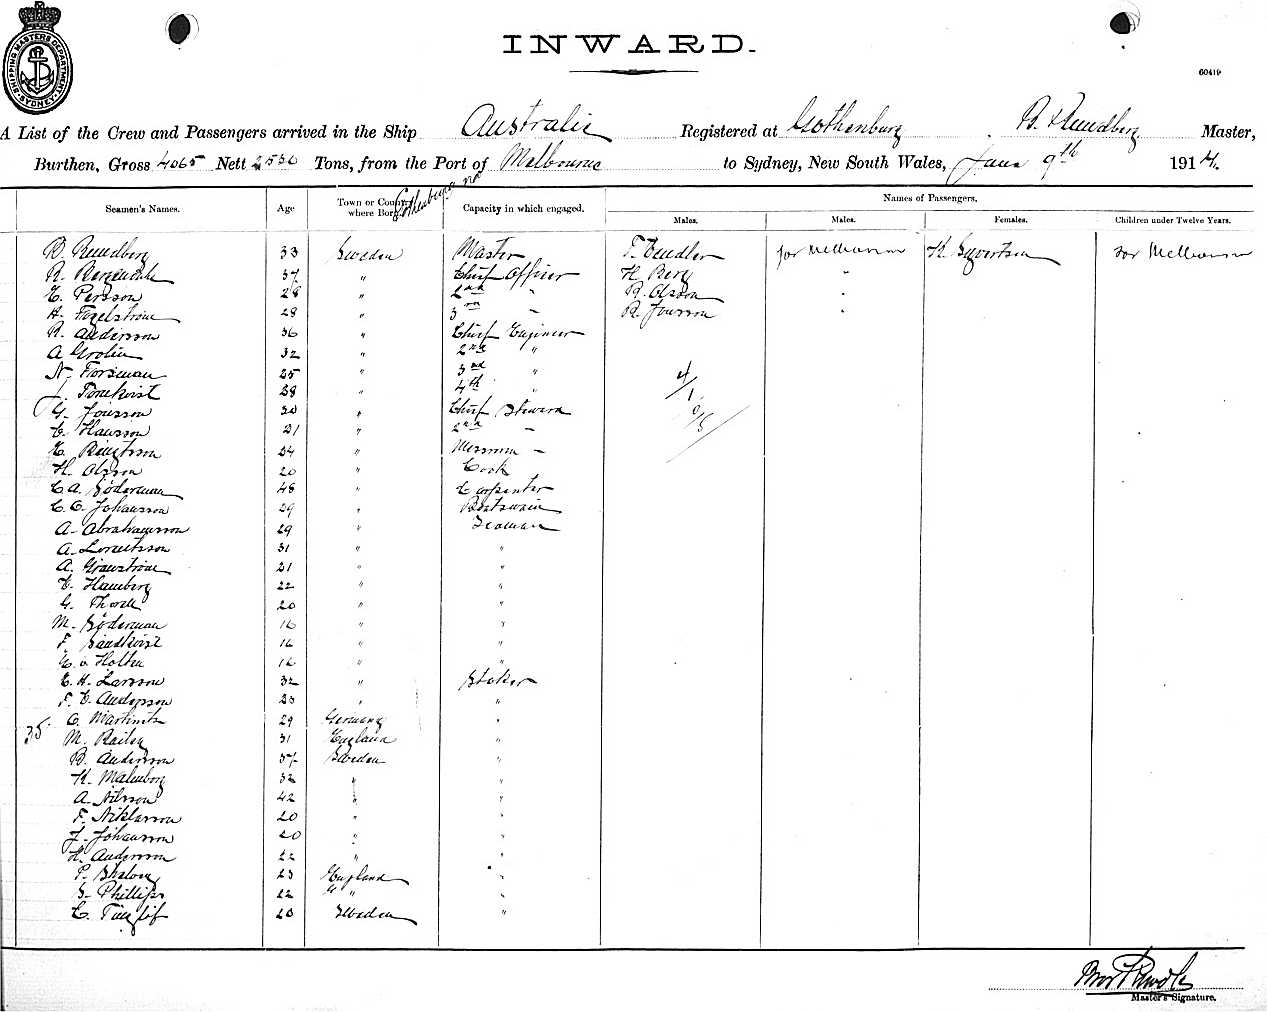 SHIPPING MASTERS DEPARTMENT SYDNEY
INWARD.
60419
A List of the Crew and Passengers arrived in the Ship Australic Registered at Gothenburg B. Rundberg Master,
Burthen, Gross 4065 Nett 2530 Tons, from the Port of Melbourne to Sydney, New South Wales, June 9th 1914.
Names of Passengers.
Seamen's Names. Age Town or Country where Born Gothenburg Capacity in which engaged. Males. Males. Females. Children under Twelve Years.
B. Rundberg 33 Sweden Master F. for Melbourne K. Syvertsen for Melbourne
R. 37 " Chief Officer H. Berg "
C. Persson 28 " 2nd " R. Olsson "
A. Fogelström 28 " 3rd " R. Jonsson "
R. Andersson 36 " Chief Engineer
A Grolin 32 " 2nd "
N. Forsman 25 " 3rd "
J. Törnkvist 28 " 4th "
G. Jonsson 30 " Chief Steward
C. Hansson 21 " 2nd "
E. Bengtsson 24 " Messman
H. Olsson 20 " Cook
C A. Söderman 48 " Carpenter
C. O. Johansson 29 " Boatswain
A. Abrahamsson 29 " Seaman
A. Lorentsson 31 " "
A. Granström 21 " "
E. Hamberg 22 " "
G. Thorell 20 " "
M. Söderman 16 " "
F. Sandkvist 16 " "
G. v Holten 16 " "
E. H. Larsson 32 " Stoker
F. E. Andersson 23 " "
C. Martinits 29 Germany "
35
M. Bailey 31 England "
B. Andersson 37 Sweden "
K. Malmborg 32 " "
A. Nilsson 42 " "
F. Niklasson 20 " "
J. Johansson 20 " "
H. Andersson 22 " "
P. 23 England "
S. Phillips 22 " "
C. 20 Sweden "
4/1 0/5
Master's Signature.